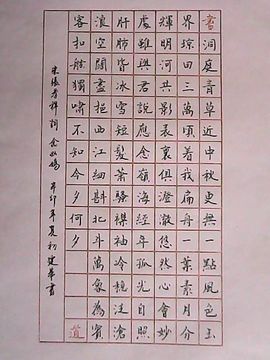 書
洞庭青草近中秋更無一點風色玉
界瓊田三萬頃着我扁舟一葉素月分
輝明河共影表裏俱澄澈悠然心會妙
處難與君說應念嶺海經年孤光自照
肝肺皆冰雪短髮蕭騷襟袖冷穩泛滄
浪空闊盡挹西江細斟北斗萬象為賓
客扣舷獨嘯不知今夕何夕
道
宋張孝祥詞念奴嬌 辛卯年夏初 建華書